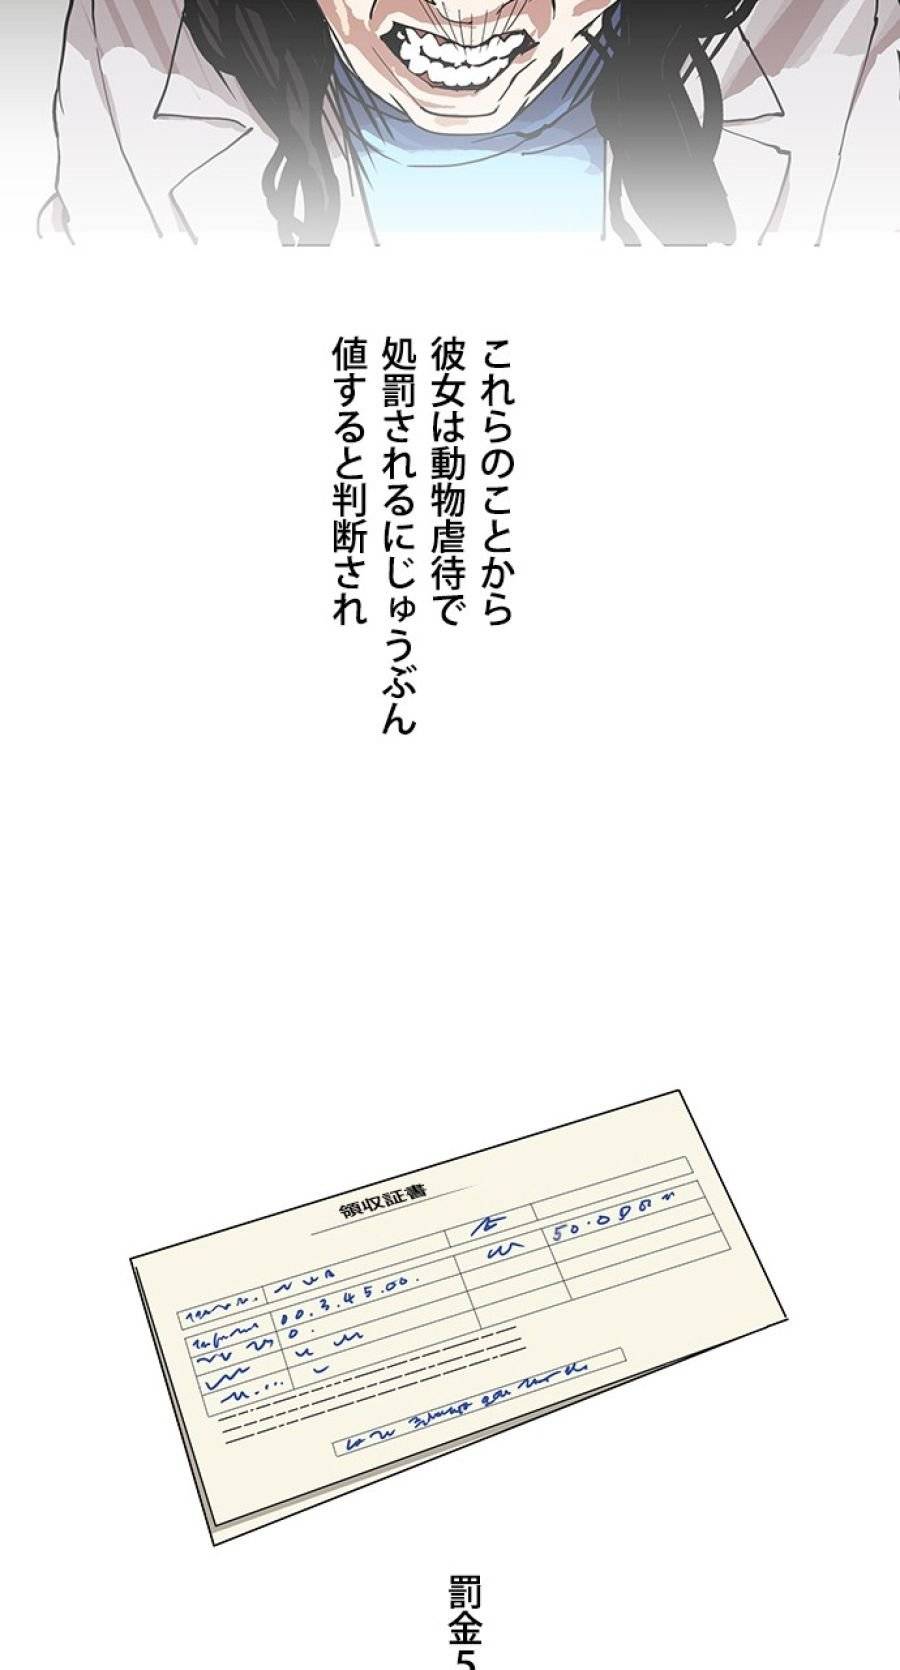 これらのことから
彼女は動物虐待で
処罰されるにじゅうぶん
値すると判断され
領収証書
罰金5